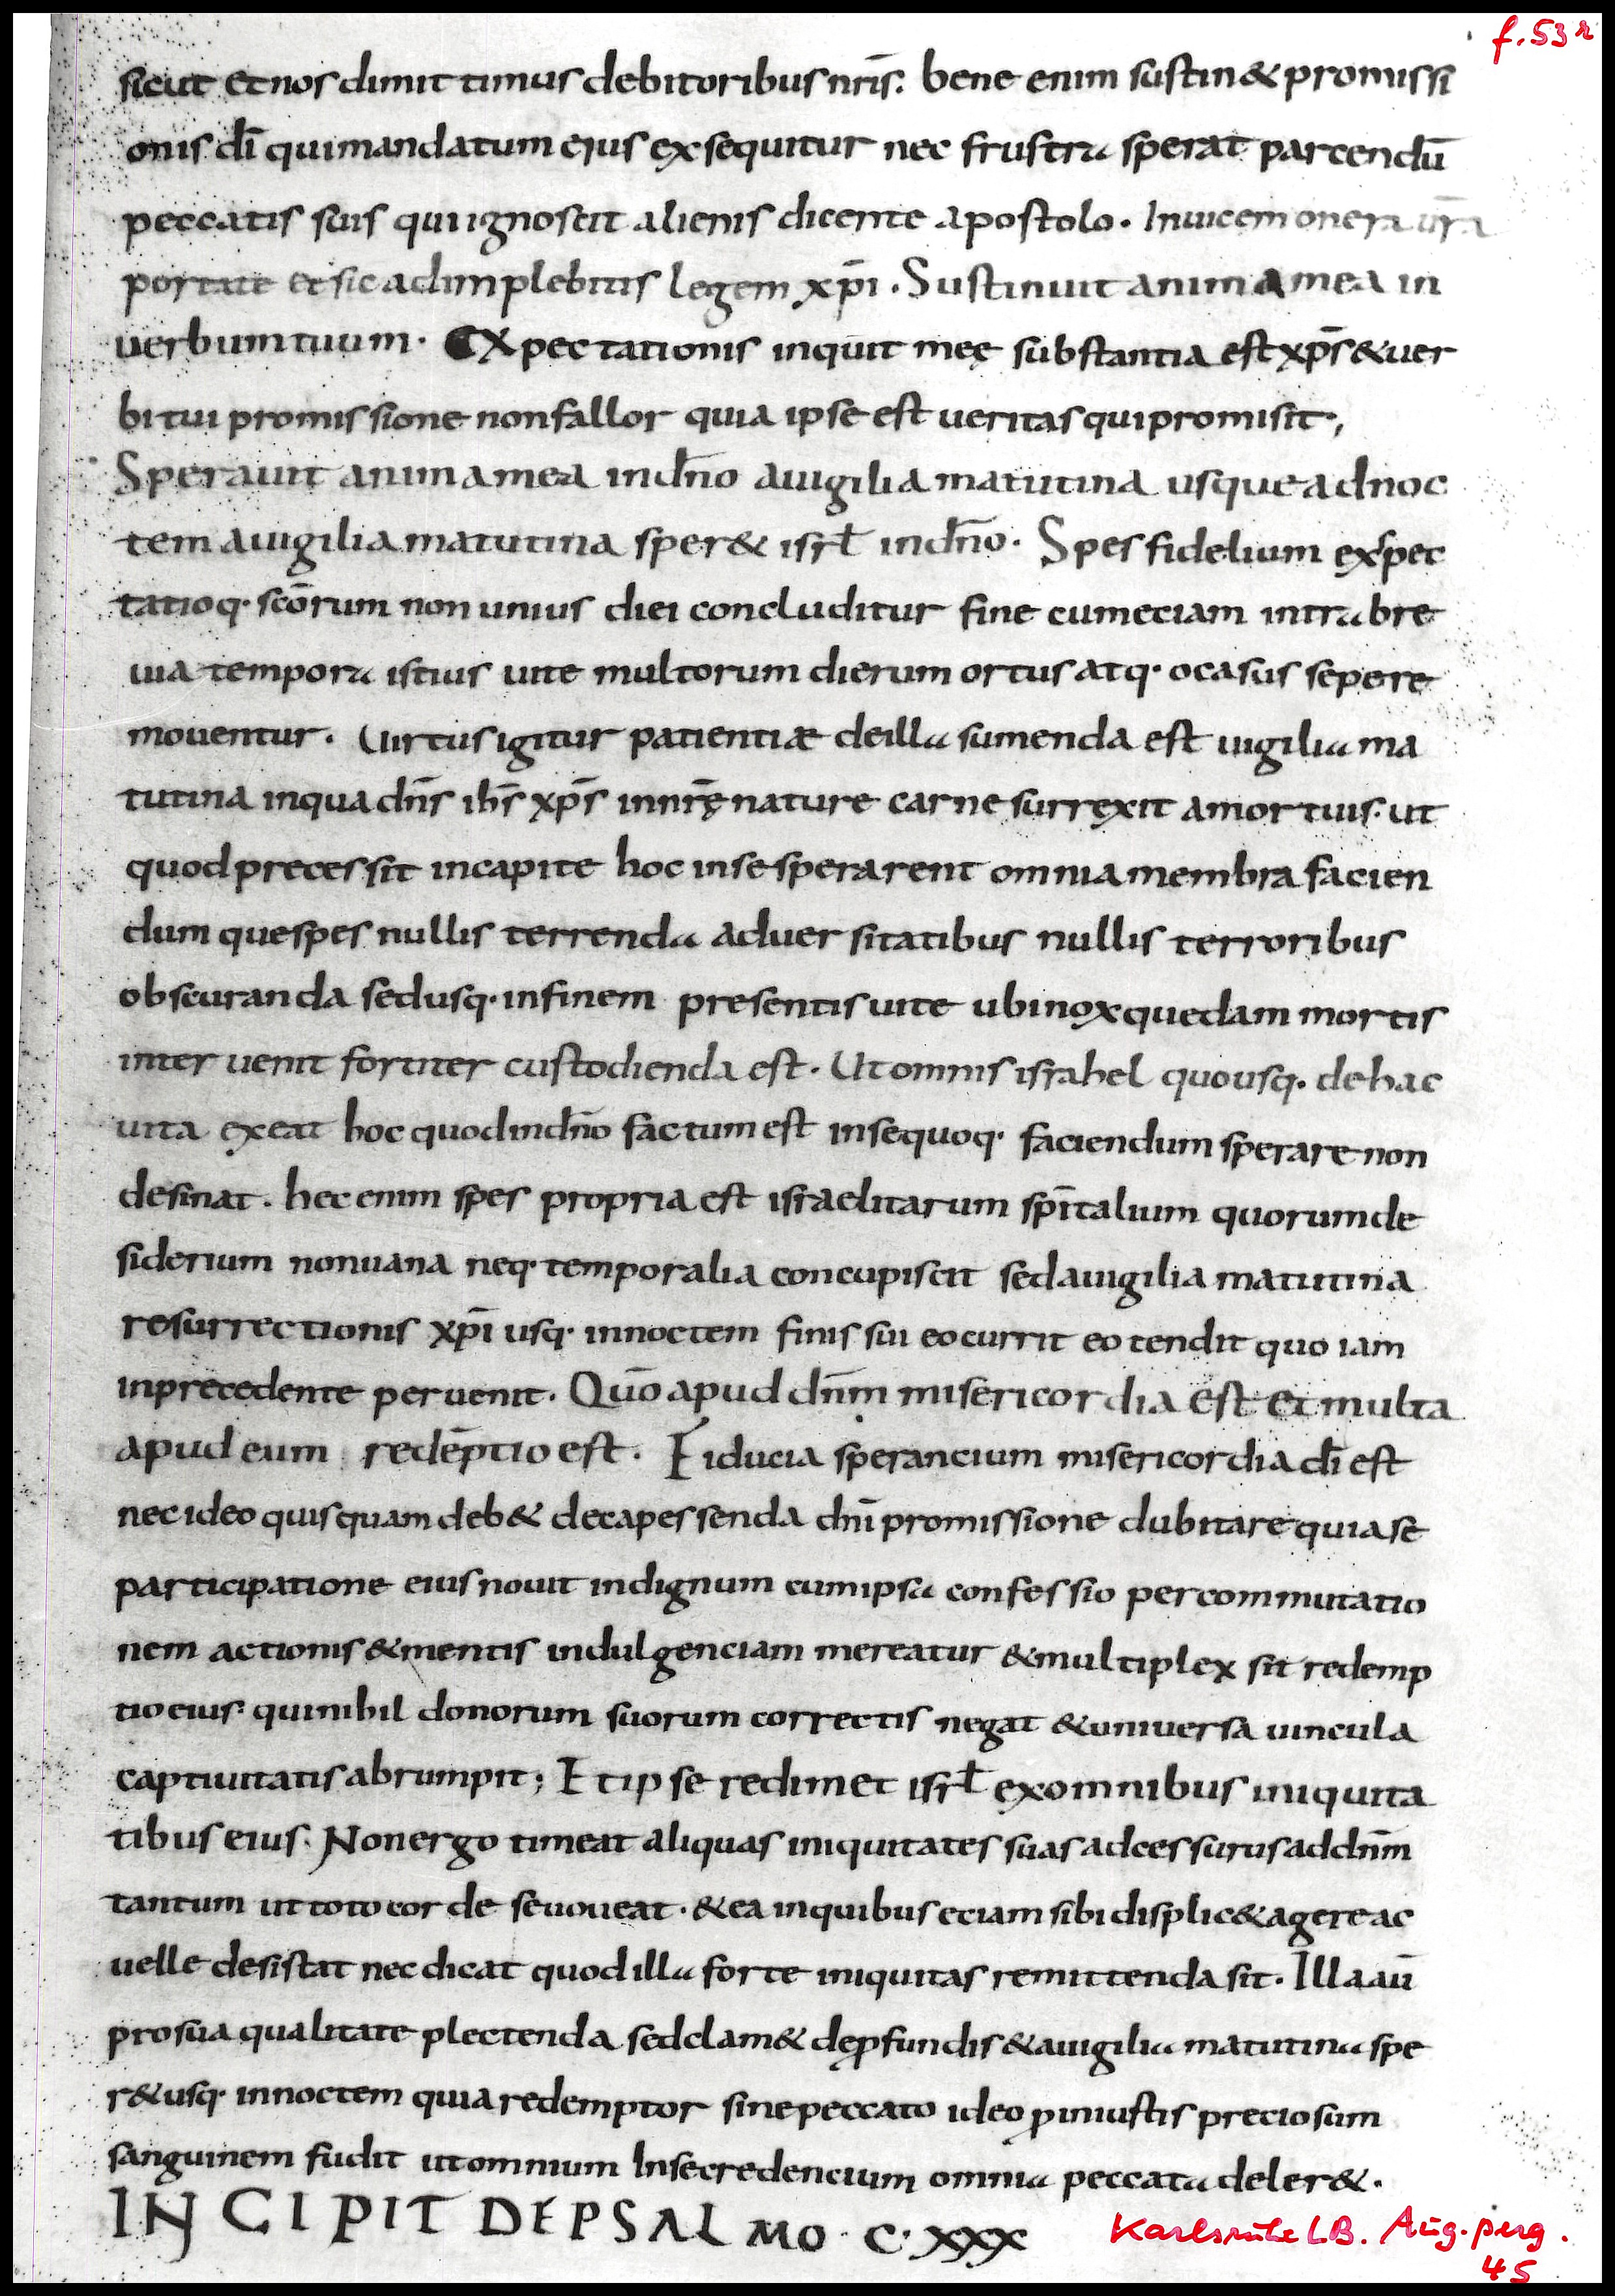 f. 53 r
sicut et nos dimittimus debitoribus nr̄is. bene enim sustin& promissi
onis dī qui mandatum eius exsequitur nec frustra sperat parcendū
peccatis suis qui ignoscit alienis dicente apostolo. Inuicem onera ūra
portate et sic adimplebitis legem xp̄i. Sustinuit anima mea in
uerbum tuum. Expectationis inquit meę substantia est xp̄s & uer
bi tui promissione non fallor quia ipse est ueritas qui promisit.,
Sperauit anima mea in dn̄o a uigilia matutina usque ad noc
tem a uigilia matutina sper& isrł in dn̄o. Spes fidelium expec
tatioq· sc̄orum non unius diei concluditur fine cum eciam intra bre
uia tempora istius uite multorum dierum ortus atq· ocasus sepe re
mouentur. Uirtus igitur patientiæ de illa sumenda est uigilia ma
tutina in qua dn̄s ih̄s xp̄s in nr̄ę nature carne surrexit a mortuis. ut
quod precessit in capite hoc in se sperarent omnia membra facien
dum que spes nullis terrenda aduersitatibus nullis terroribus
obscuranda sed usq· in finem presentis uite ubi nox quedam mortis
interuenit fortiter custodienda est. Ut omnis israhel quousq· de hac
uita exeat hoc quod in dn̄o factum est in se quoq· faciendum sperare non
desinat. hec enim spes propria est israelitarum sp̄italium quorum de
siderium non uana neq· temporalia concupiscit sed a uigilia matutina
resurrectionis xp̄i usq· in noctem finis sui eo currit eo tendit quo iam
in precedente peruenit. Qūo apud dn̄m misericordia est et multa
apud eum redēptio est. Fiducia sperancium misericordia dī est
nec ideo quisquam deb& de capessenda dn̄i promissione dubitare quia se
participatione eius nouit indignum cum ipsa confessio per commutatio
nem actionis & mentis indulgenciam mereatur & multiplex sit redemp
tio eius. qui nihil donorum suorum correctis negat & uniuersa uincula
captiuitatis abrumpit; Et ipse redimet isrł ex omnibus iniquita
tibus eius. Non ergo timeat aliquas iniquitates suas adcessurus ad dn̄m
tantum ut toto corde se uoueat. & ea in quibus eciam sibi displic& agere ac
uelle desistat nec dicat quod illa forte iniquitas remittenda sit. Illa aū
pro sua qualitate plectenda sed clam& de ꝓfundis & a uigilia matutina spe
r& usq· in noctem quia redemptor sine peccato ideo ꝓ iniustis preciosum
sanguinem fudit ut omnium In se credencium omnia peccata deler&.
INCIPIT DE PSALMO · C· XXX
Karlsruhe LB. Aug. perg.
45